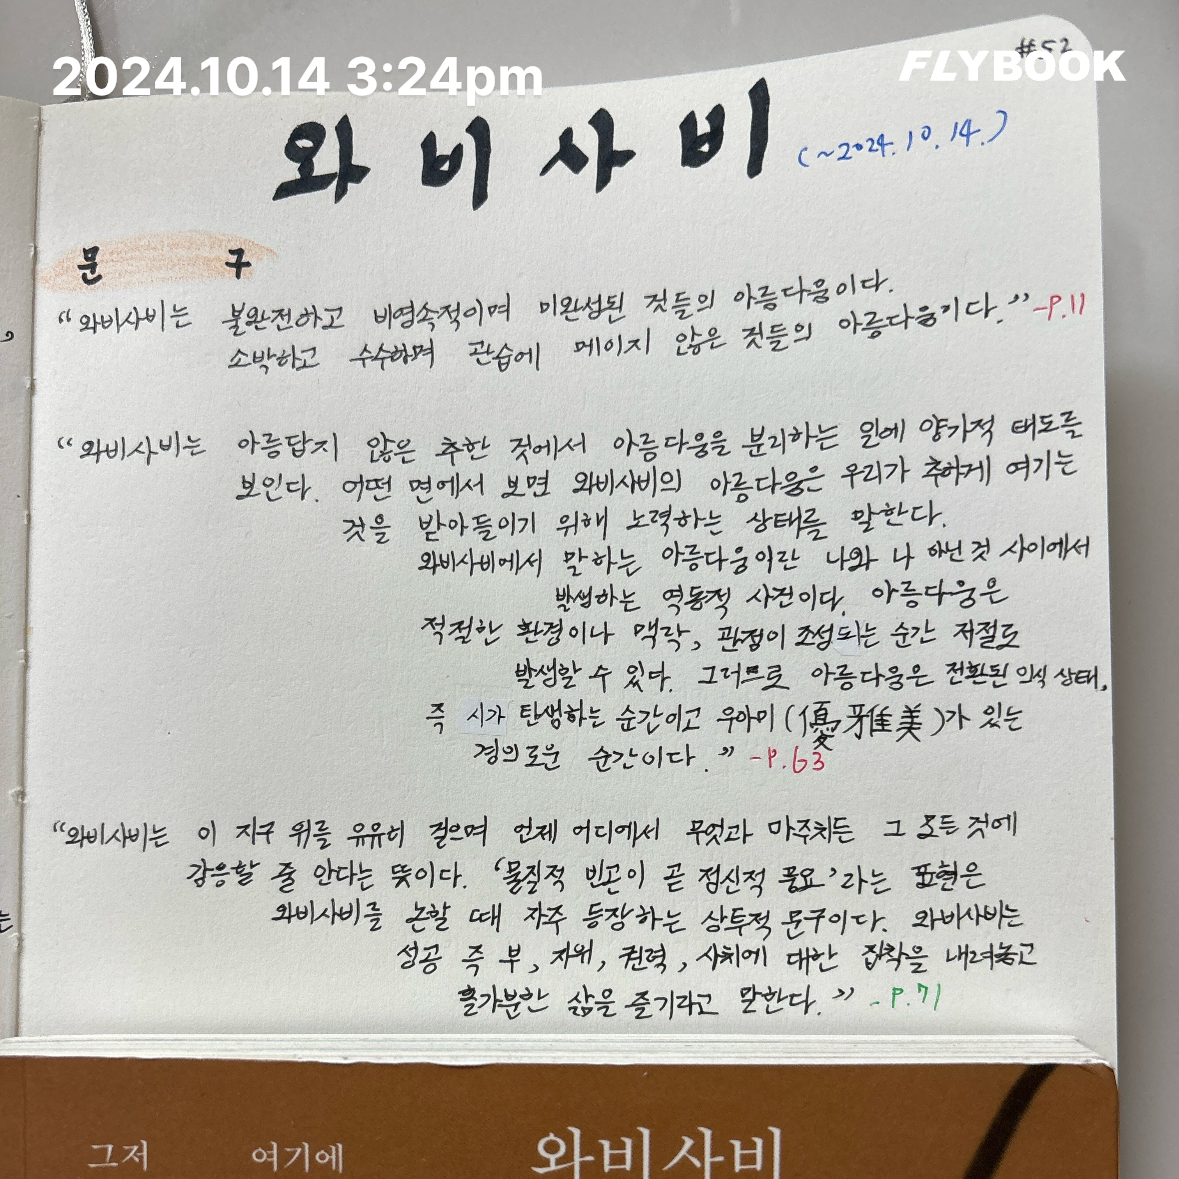 2024.10.14 3:24pm
FLYBOOK
#52
와비사비
(~2024.10.14.)
문 구
“와비사비는 불완전하고 비영속적이며 미완성된 것들의 아름다움이다.
소박하고 수수하며 관습에 메이지 않은 것들의 아름다움이다.” -P.11
“와비사비는 아름답지 않은 추한 것에서 아름다움을 분리하는 일에 양가적 태도를
보인다. 어떤 면에서 보면 와비사비의 아름다움은 우리가 추하게 여기는
것을 받아들이기 위해 노력하는 상태를 말한다.
와비사비에서 말하는 아름다움이란 나와 나 아닌 것 사이에서
발생하는 역동적 사건이다. 아름다움은
적절한 환경이나 맥락, 관점이 조성되는 순간 저절로
발생할 수 있다. 그러므로 아름다움은 전환된 의식 상태,
즉 시가 탄생하는 순간이고 우아미(優雅美)가 있는
경의로운 순간이다.” -P.63
“와비사비는 이 지구 위를 유유히 걸으며 언제 어디에서 무엇과 마주치든 그 모든 것에
감응할 줄 안다는 뜻이다. ‘물질적 빈곤이 곧 정신적 풍요’라는 표현은
와비사비를 논할 때 자주 등장하는 상투적 문구이다. 와비사비는
성공 즉 부, 지위, 권력, 사치에 대한 집착을 내려놓고
홀가분한 삶을 즐기라고 말한다.” -P.71
그저 여기에 와비사비